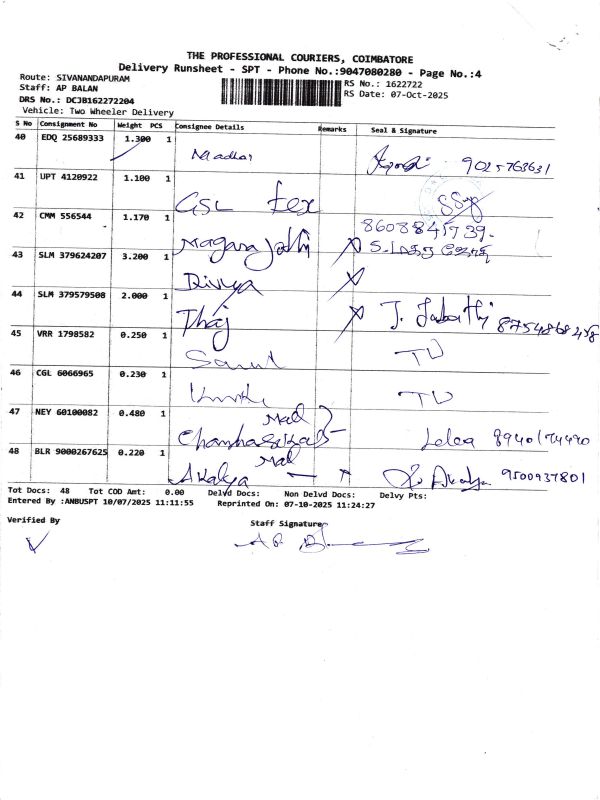 THE PROFESSIONAL COURIERS, COIMBATORE
Delivery Runsheet - SPT - Phone No.:9047080280 - Page No.:4
Route: SIVANANDAPURAM
Staff: AP BALAN
RS No.: 1622722
DRS No.: DCJB162272204
RS Date: 07-Oct-2025
Vehicle: Two Wheeler Delivery
S No Consignment No Weight PCS Consignee Details Remarks Seal & Signature
40 EDQ 25689333 1.300 1 Madhav 9025763631
41 UPT 4120922 1.100 1 GSL Tex
42 CMM 556544 1.170 1 8608841739
43 SLM 379624207 3.200 1 Divya
44 SLM 379579508 2.000 1 Thaj 8754868458
45 VRR 1798582 0.250 1
46 CGL 6066965 0.230 1
47 NEY 60100082 0.480 1 8940174490
48 BLR 9000267625 0.220 1 Akalya 9500937801
Tot Docs: 48 Tot COD Amt: 0.00 Delvd Docs: Non Delvd Docs: Delvy Pts:
Entered By :ANBUSPT 10/07/2025 11:11:55 Reprinted On: 07-10-2025 11:24:27
Verified By
Staff Signature